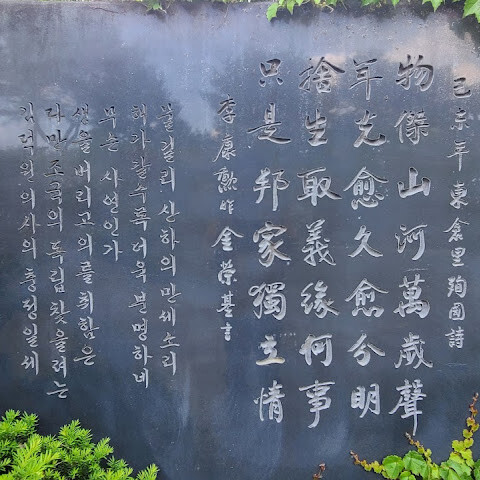 己未年東倉里殉國詩
物傑山河萬歲聲
年光愈久愈分明
捨生取義緣何事
只是邦家獨立情
李康勳作 金榮基書
물걸리 산하의 만세소리
해가갈수록 더욱 분명하네
무슨 사연인가
생을 버리고 의를 취함은
다만 조국의 독립 찾을려는
의사의 충정일세